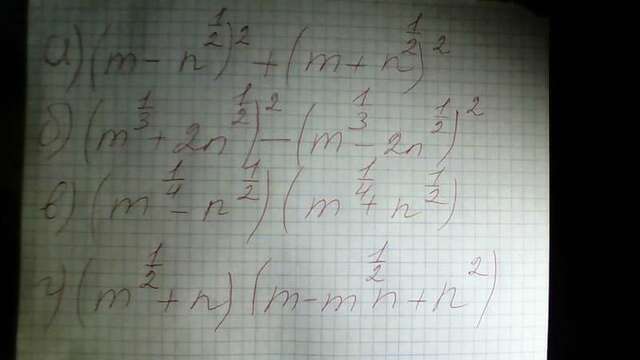 а) (m - n^{1/2})^2 + (m + n^{1/2})^2
б) (m^{1/3} + 2n^{1/2})^2 - (m^{1/3} - 2n^{1/2})^2
в) (m^{1/4} - n^{1/2}) (m^{1/4} + n^{1/2})
г) (m^{1/2} + n) (m - m^{1/2} n + n^2)